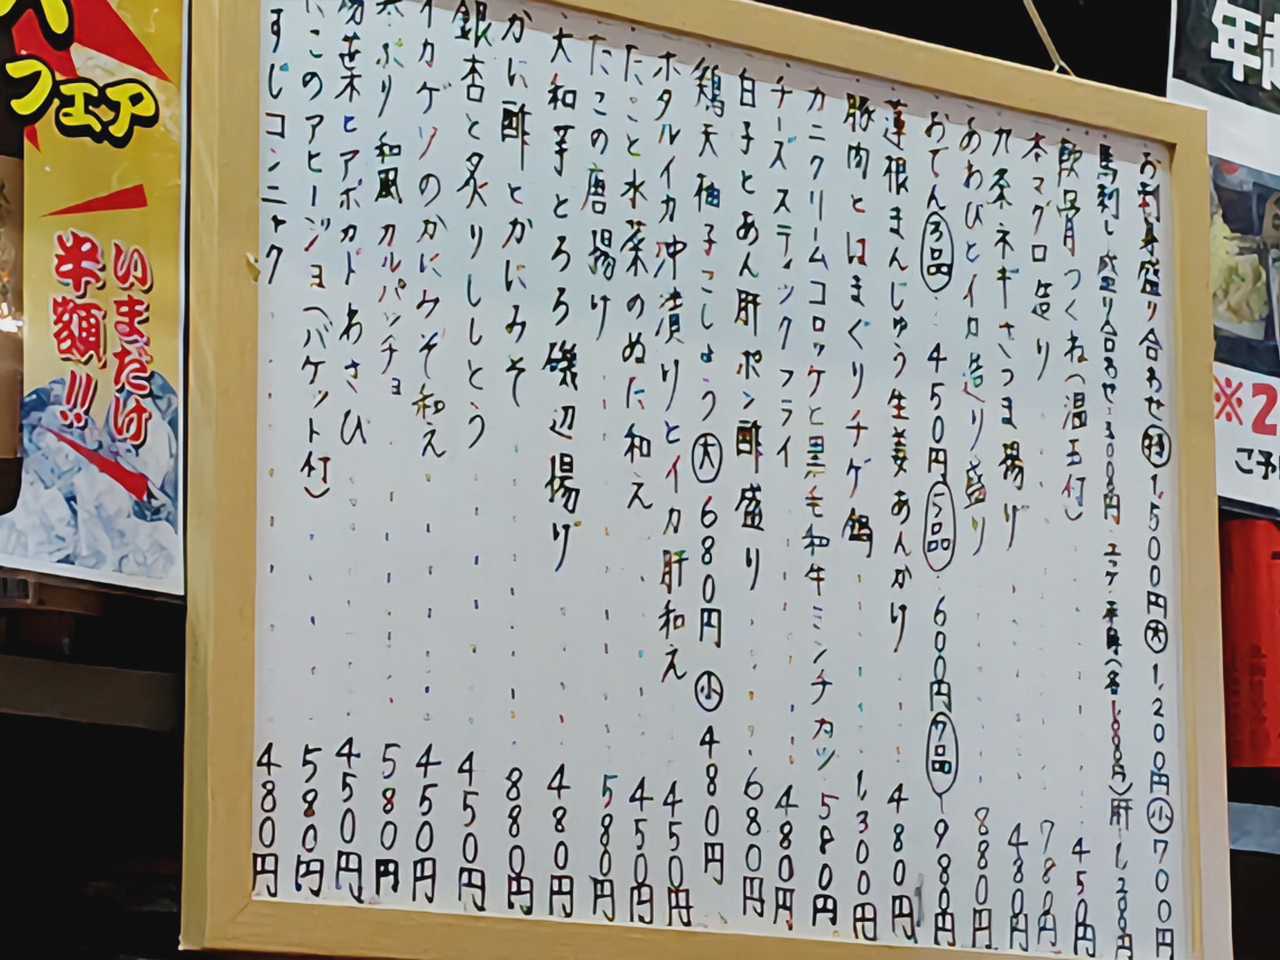 お刺身盛り合わせ 特 1,500円 大 1,200円 小 700円
馬刺し盛り合わせ 3,000円 ユッケ 赤身(各1,000円) 肝 1,200円
軟骨つくね(温玉付) 450円
本マグロ造り 780円
九条ネギさつま揚げ 480円
あわびとイカ造り盛り 880円
おでん 3品 450円 5品 600円 7品 980円
蓮根まんじゅう生姜あんかけ 480円
豚肉とはまぐりチゲ鍋 1,300円
カニクリームコロッケと黒毛和牛ミンチカツ 580円
チーズスティックフライ 480円
白子とあん肝ポン酢盛り 680円
鶏天柚子こしょう 大 680円 小 480円
ホタルイカ沖漬けとイカ肝和え 450円
たこと水菜のぬた和え 450円
たこの唐揚げ 580円
大和芋とろろ磯辺揚げ 480円
かに酢とかにみそ 880円
銀杏と炙りししとう 450円
イカゲソのかにみそ和え 450円
ぶり和風カルパッチョ 580円
葉とアボカドわさび 450円
たこのアヒージョ(バケット付) 580円
すじコンニャク 480円
フェア
いまだけ
半額!!!
年
※2
ご予